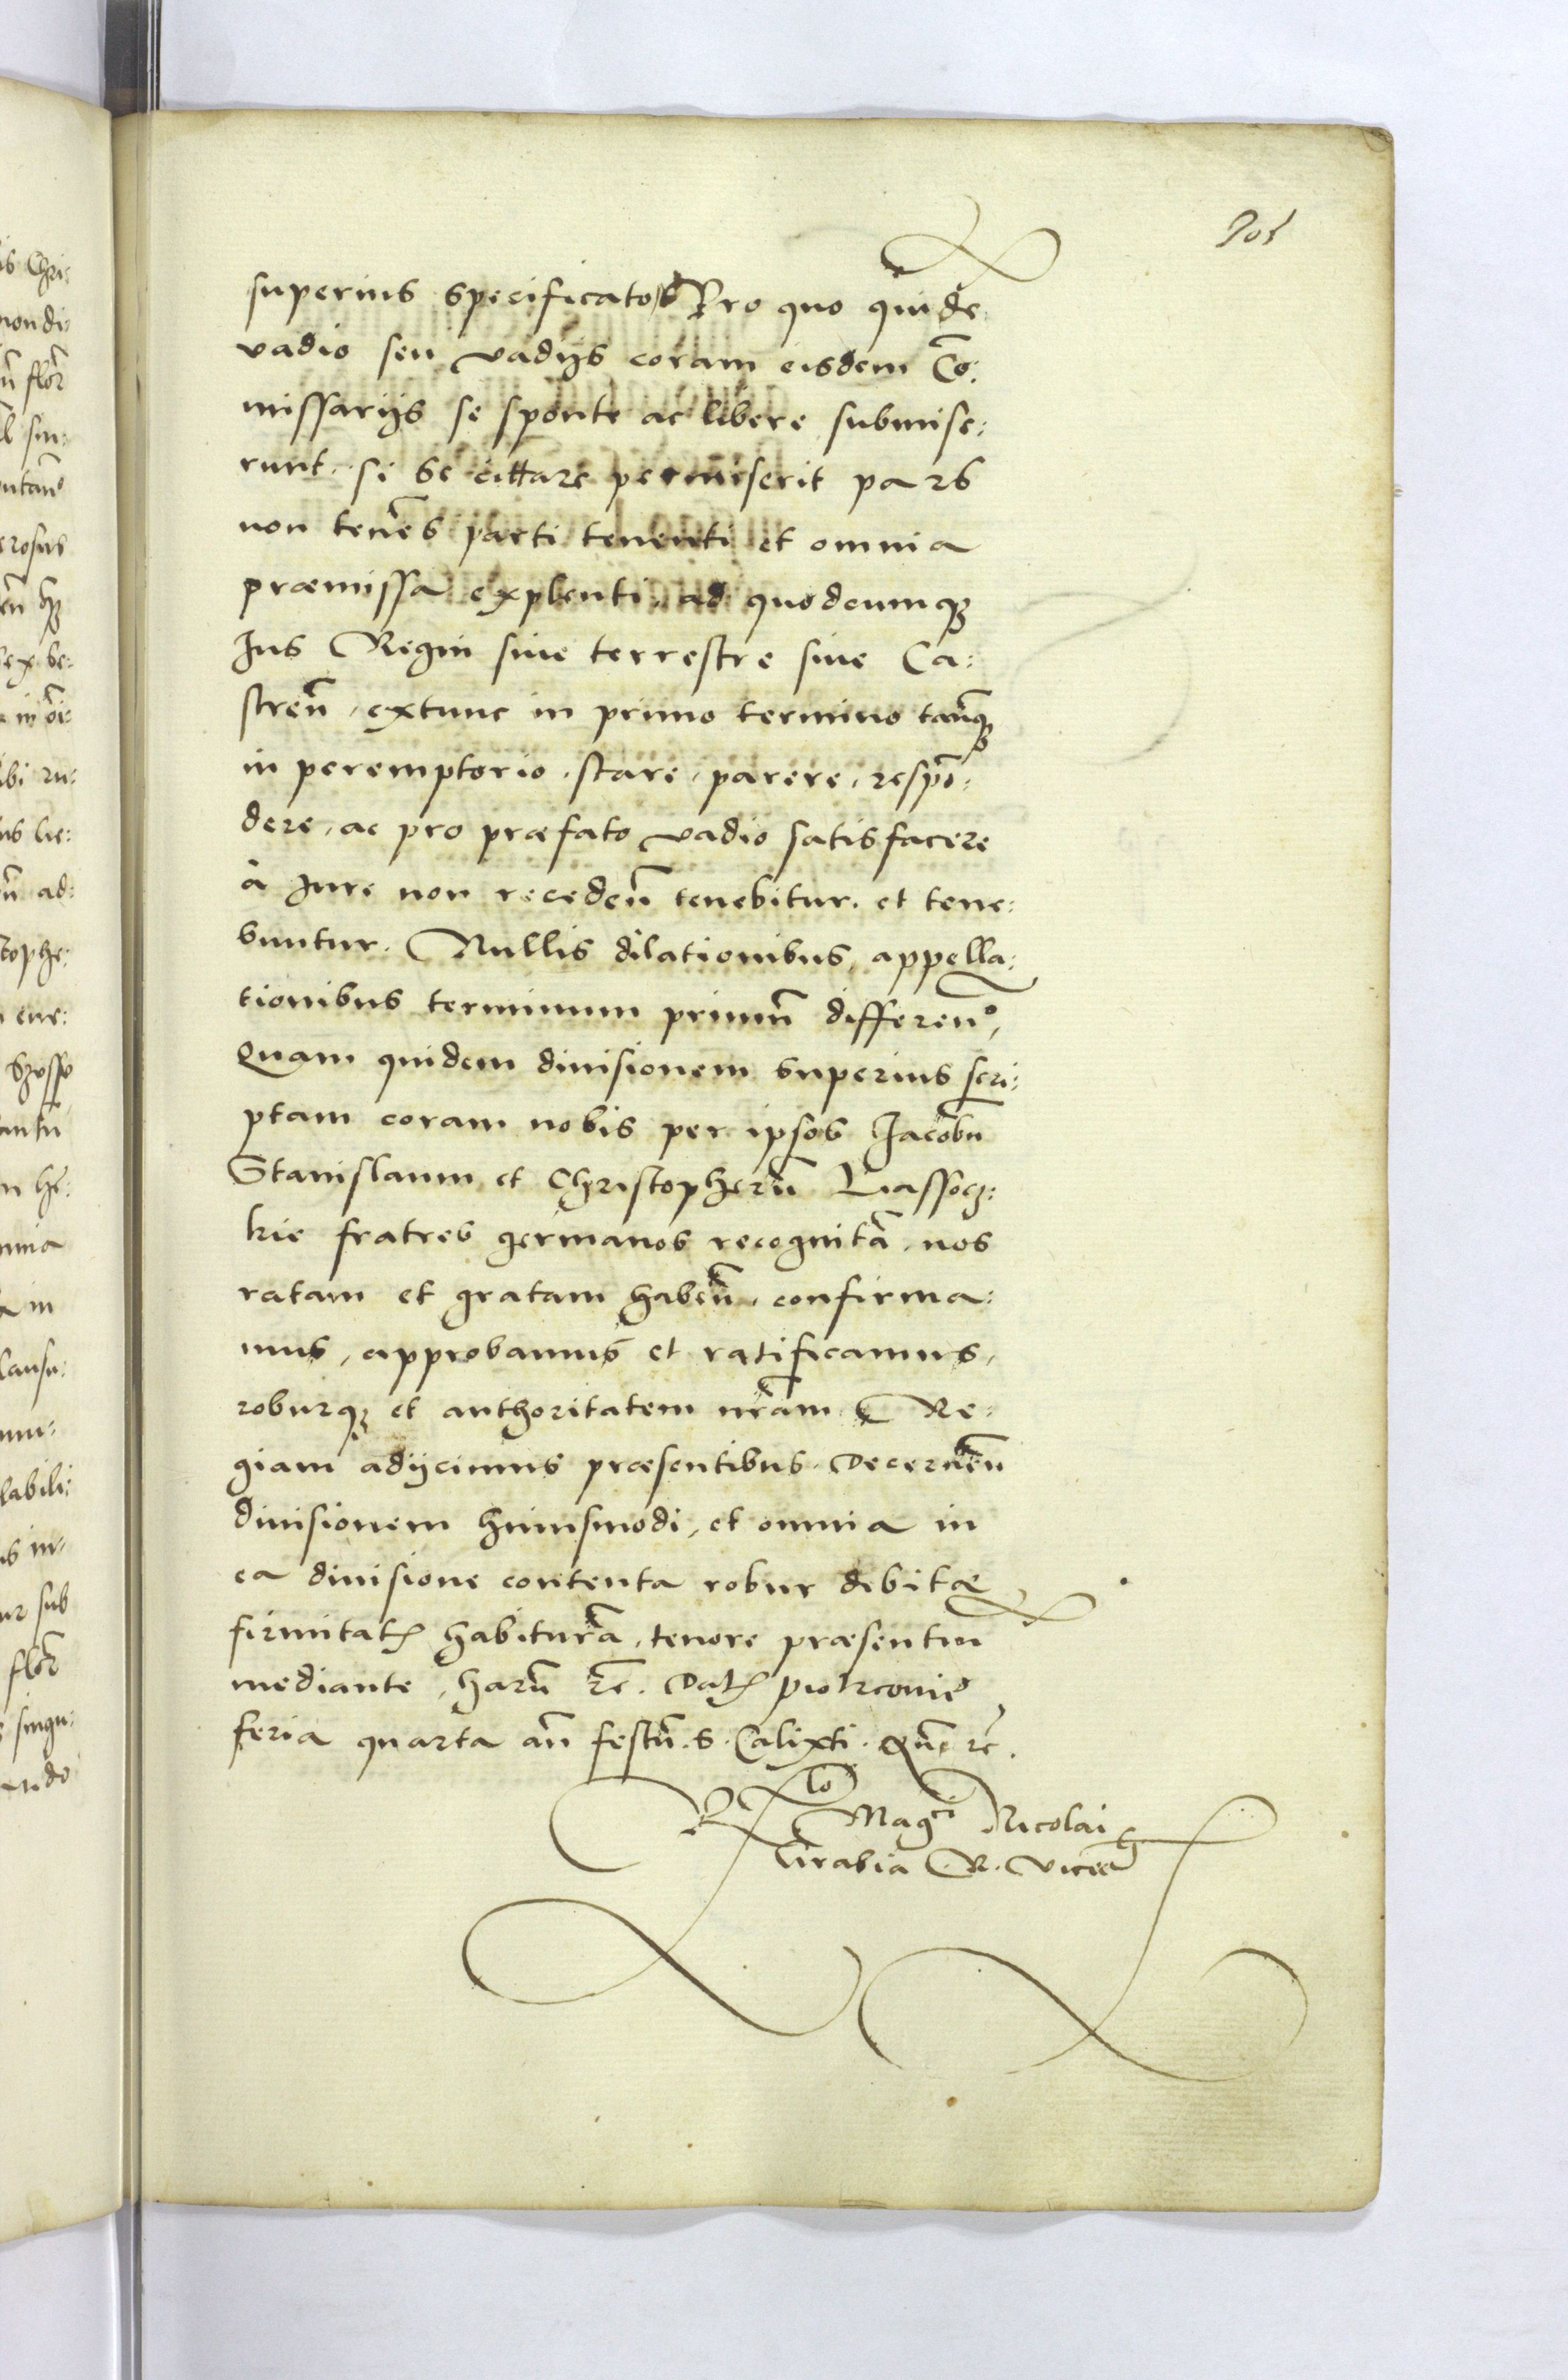 superius specificato, Pro quo quide
vadio seu vadijs coram eisdem Co͞:
missarijs se sponte ac libere submise:
runt. si se cittare permiserit pars
non tene͞s parti tenenti et omnia
præmissa explenti. ad quodcumq3
Jus Regni siue terrestre siue Ca:
stren͞. extunc in primo termino tanq͞3
in peremptorio. stare, parere, respo͞:
dere, ac pro præfato vadio satisfacere
à Jure non receden͞ tenebitur. et tene:
buntur. Nullis dilationibus, appella:
tionibus terminum primu͞ differen͞º,
Quam quidem diuisionem superius scri:
ptam coram nobis per ipsos Jacobu͞
Stanislaum et Christopheru͞ Liassocz:
kie fratres germanos recognita͞. nos
ratam et gratam haben͞. confirma:
mus, approbamus et ratificamus,
roburq3 et authoritatem nr͞am Re:
giam adijcimus præsentibus. Decernen͞
diuisionem huiusmodi, et omnia in
ea diuisione contenta robur debitæ
firmitatꝭ habitura͞, tenore præsentiu͞
mediante, haru͞ rc͞. Datꝭ Piotrconie
feria quarta an͞ festu͞ S. Calixti. Qu͞e rc͞.
Rlo
Mag^ci Nicolai
Grabia R. Vicec